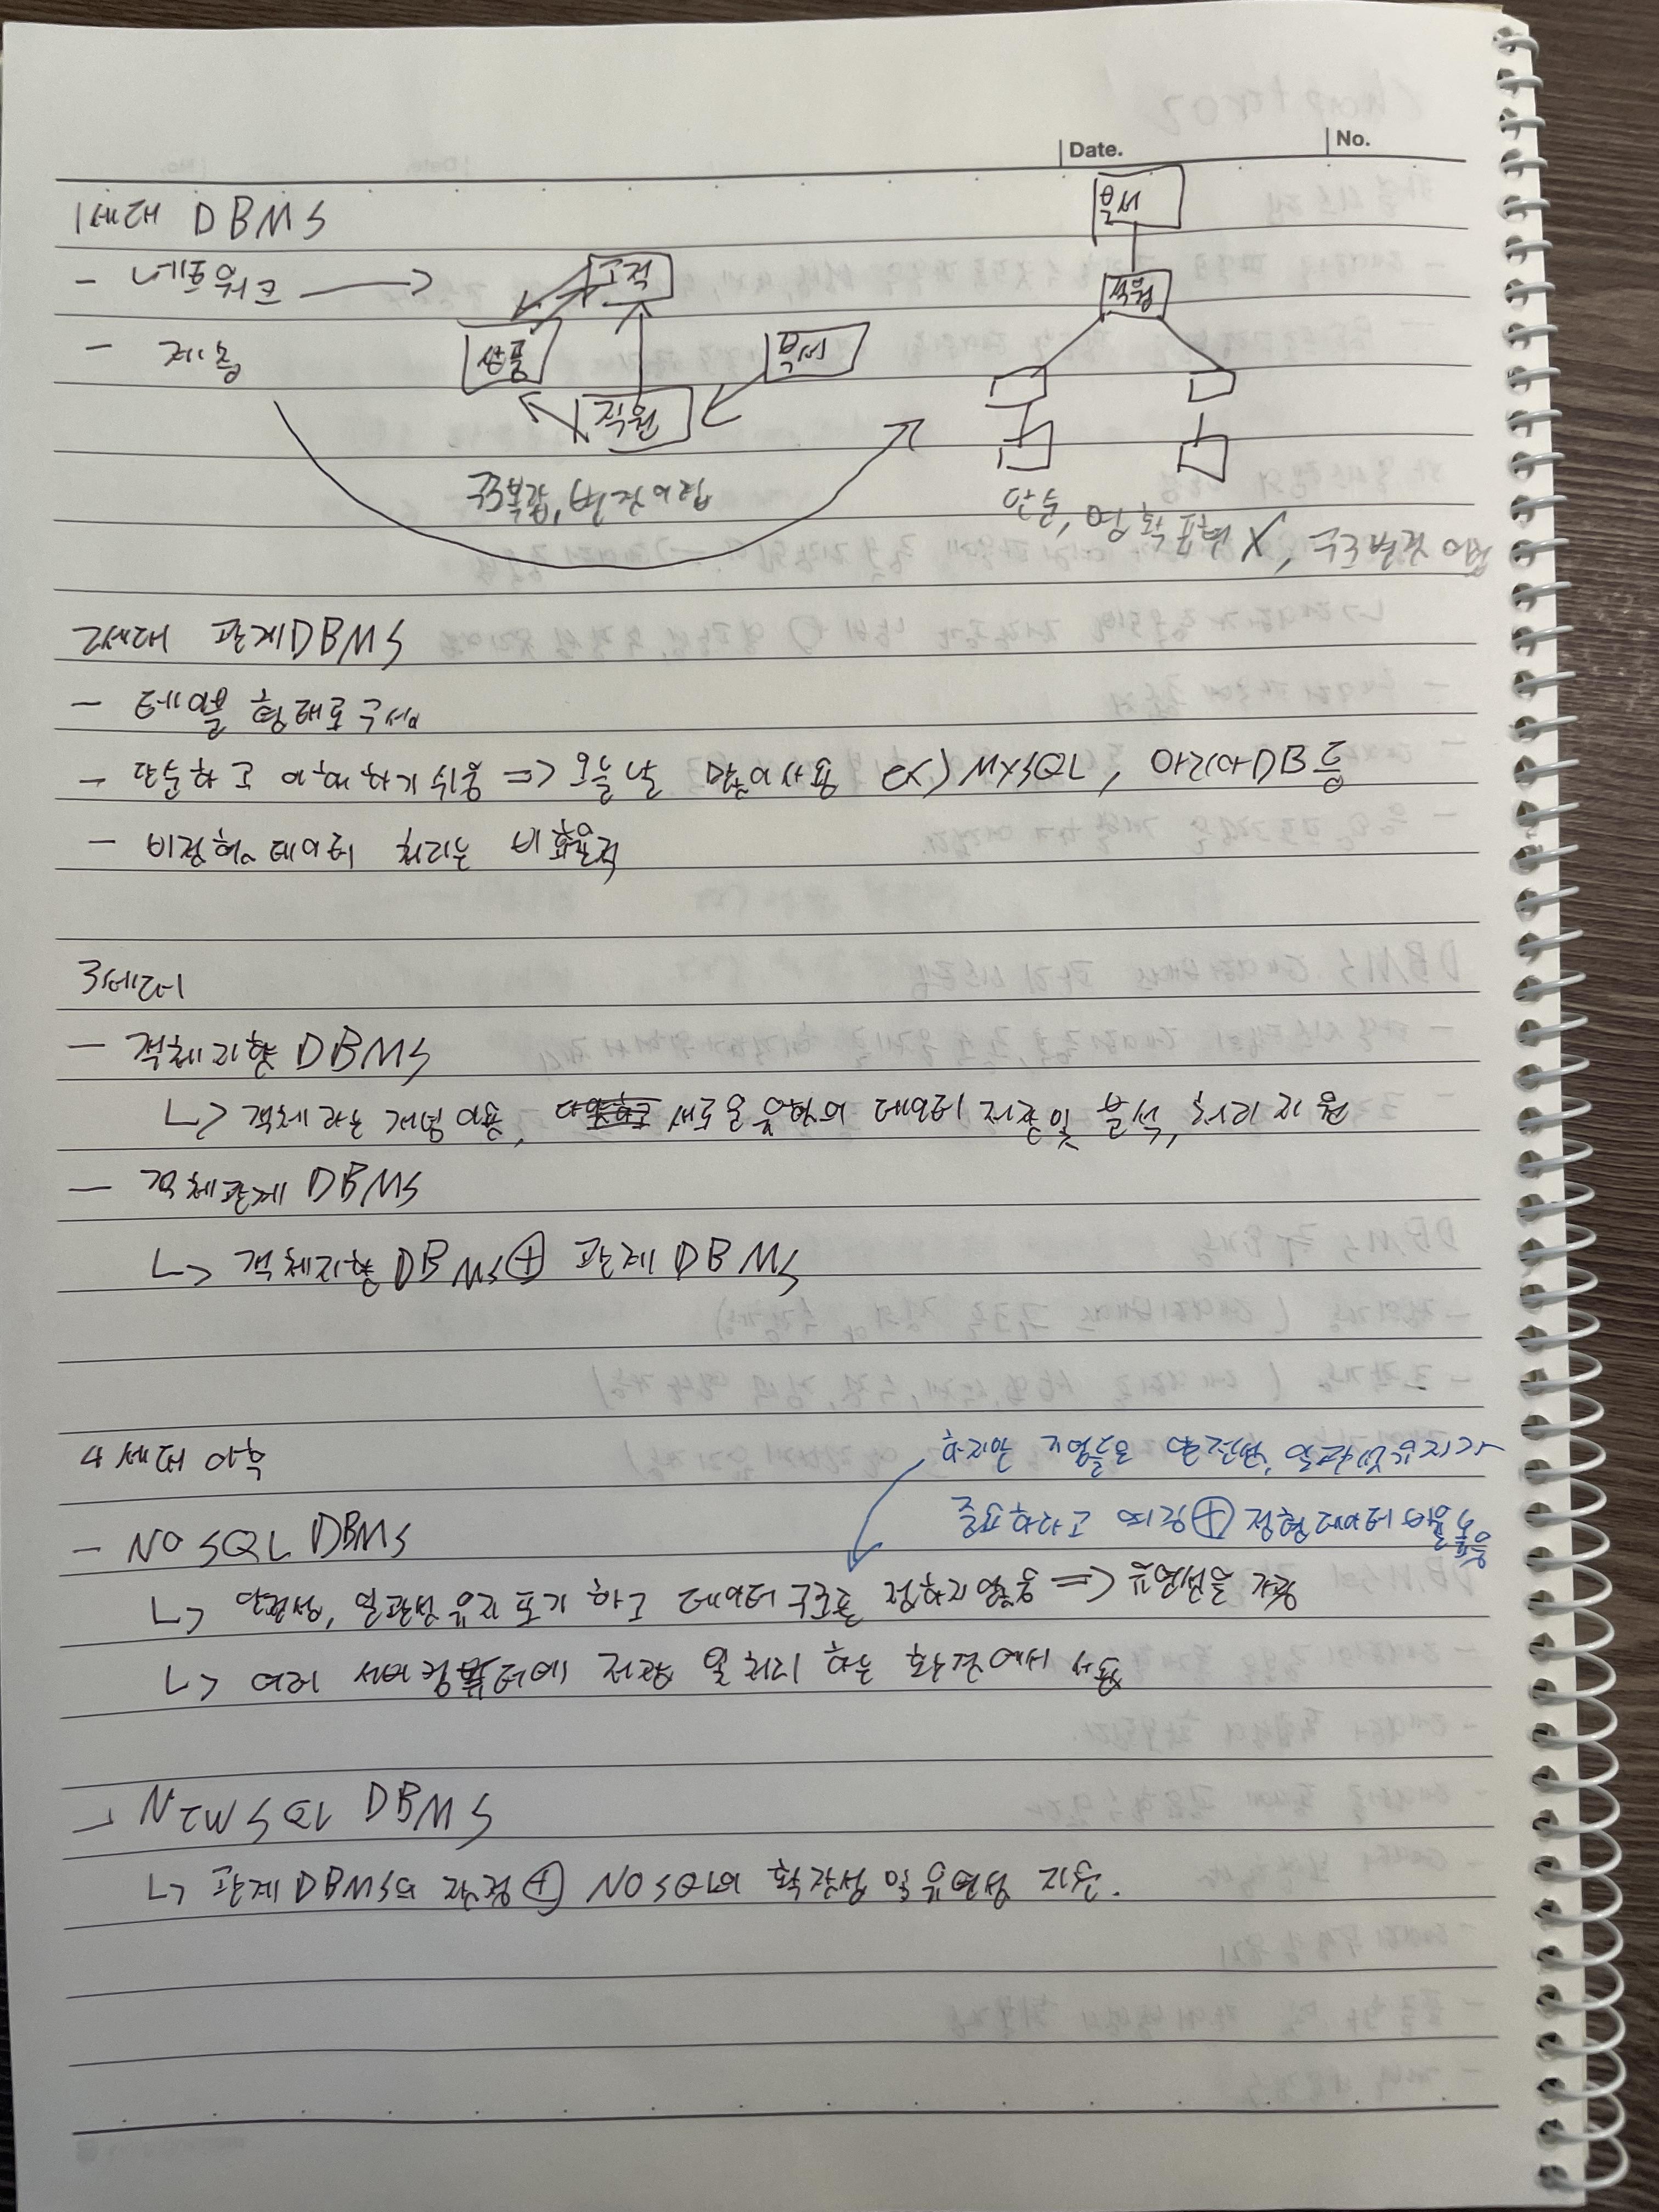 Date.
No.
1세대 DBMS
- 네트워크
- 계층
고객
상품
부서
직원
구조복잡, 변경어렵
부서
직원
단순, 표현 X, 구조변경 어렵
2세대 관계DBMS
- 테이블 형태로 구성
- 단순하고 이해하기 쉬움 => 오늘날 많이사용 ex) MySQL, 마리아DB 등
- 비정형 데이터 처리는 비효율적
3세대
- 객체지향 DBMS
↳ 객체라는 개념 이용, 새로운 유형의 데이터 저장및 분석, 처리 지원
- 객체관계 DBMS
↳ 객체지향 DBMS ⊕ 관계 DBMS
4세대 이후
하지만 기업들은 안전성, 일관성 유지가
중요하다고 여김 ⊕ 정형데이터 비율 높음
- NO SQL DBMS
↳ 안정성, 일관성 유지 포기 하고 데이터 구조를 정하지 않음 => 유연성을 가짐
↳ 여러 서버컴퓨터에 저장 및 처리 하는 환경에서 사용
- NEWSQL DBMS
↳ 관계DBMS의 장점 ⊕ NOSQL의 확장성 및 유연성 지원.